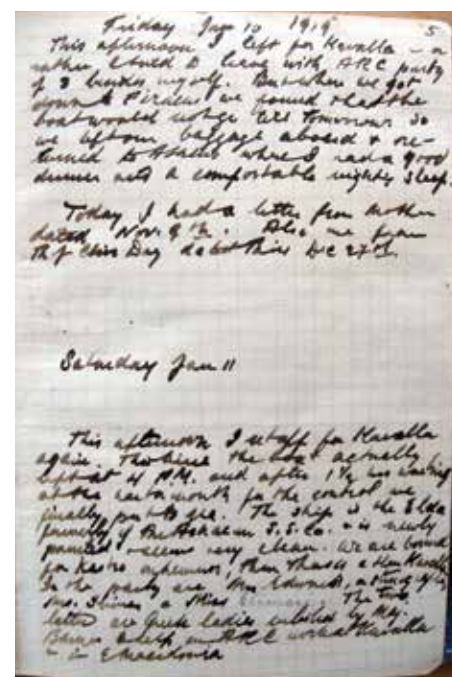 Friday Jan 10 1919 5
This afternoon I left for Kavalla – or
rather started to leave with ARC party
of 3 besides myself. But when we got
down to Piraeus we found that the
boat would not go till tomorrow. So
we left our baggage aboard & re-
turned to Athens where I had a good
dinner and a comfortable night's sleep.
Today I had a letter from Mother
dated Nov. 9th. Also one from
Clive Day dated Paris Dec 27th.
Saturday Jan 11
This afternoon I set off for Kavalla
again. This time the boat actually
left at 4 PM. and after 1½ hrs waiting
at the harbor mouth for the control we
finally put to sea. The ship is the Elda
formerly of the S.S. Co. & is newly
painted & seems very clean. We are bound
for Kastro, then Thasos & then Kavalla
In the party are Mrs Edwards,
Mrs. & Miss The two
latter are Greek ladies enlisted by Maj.
Barnes to help in ARC work at Kavalla
& in E Macedonia